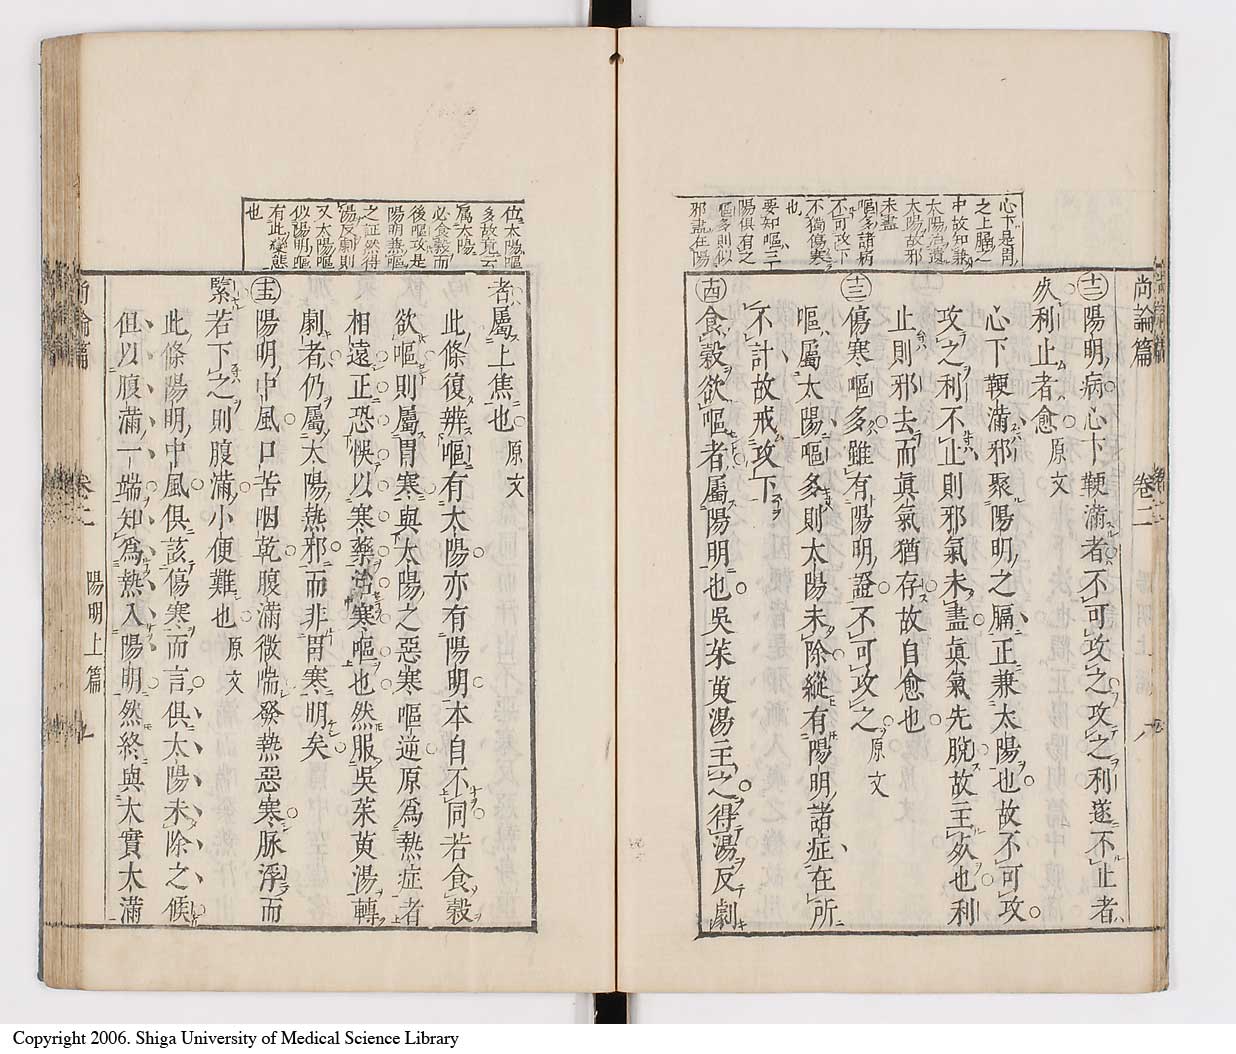 尚論篇
卷二
心下是胃
之上膈之
中故知兼
太陽治邪
太陽故邪
未盡
嘔多諸病
不可攻下
不獨傷寒
也
要知嘔三
陽俱有之
嘔多則似
邪盡在陽
十二陽明病心下鞕滿者不可攻之攻之利遂不止者
死利止者愈原文
心下鞕滿邪聚陽明之膈正兼太陽也故不可攻
攻之利不止則邪氣未盡眞氣先脫故主死也利
止則邪去而眞氣猶存故自愈也
十三傷寒嘔多雖有陽明證不可攻之原文
嘔屬太陽嘔多則太陽未除縱有陽明諸症在所
不計故戒攻下
十四食穀欲嘔者屬陽明也吳茱萸湯主之得湯反劇
位太陽嘔
多故竟云
屬太陽
必食穀而
後嘔攻是
陽明兼嘔
之証然得
湯反劇則
又太陽嘔
似陽明嘔
有此變態
也
者屬上焦也原文
此條復辨嘔有太陽亦有陽明本自不同若食穀
欲嘔則屬胃寒與太陽之惡寒嘔逆原爲熱症者
相遠正恐悞以寒藥治寒嘔也然服吳茱萸湯轉
劇者仍屬太陽熱邪而非胃寒明矣
十五陽明中風口苦咽乾腹滿微喘發熱惡寒脉浮而
緊若下之則腹滿小便難也原文
此條陽明中風俱該傷寒而言俱太陽未除之候
但以腹滿一端知爲熱入陽明然終與大實大滿
陽明上篇
尚論篇
卷二
Copyright 2006. Shiga University of Medical Science Library